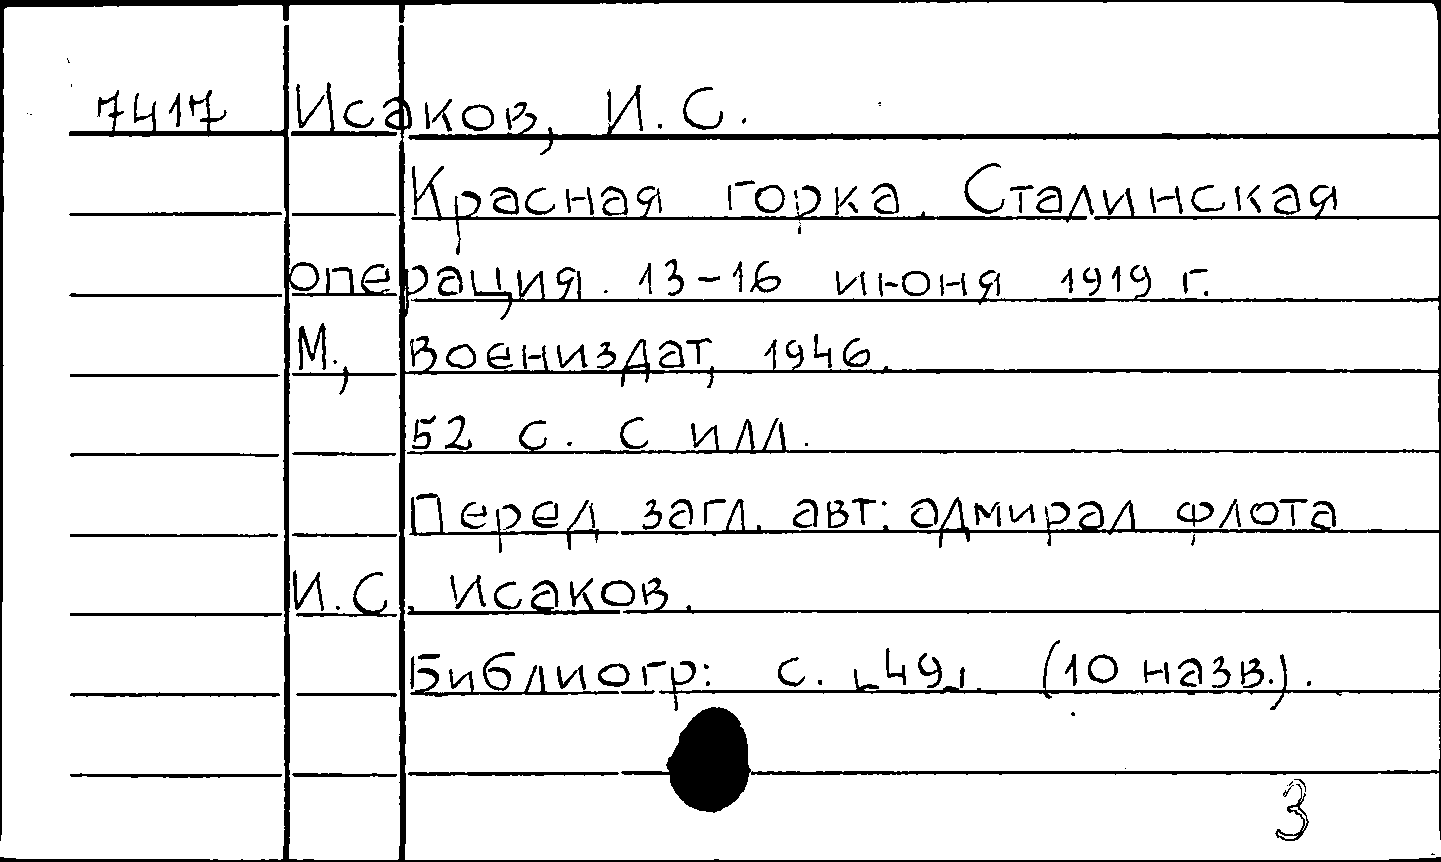 7417 Исаков, И. С.
Красная горка. Сталинская
операция. 13-16 июня 1919 г.
М., Воениздат, 1946.
52 с. с илл.
Перед загл. авт: адмирал флота
И.С. Исаков.
Библиогр: с. ⌞49⌟. (10 назв.).
3